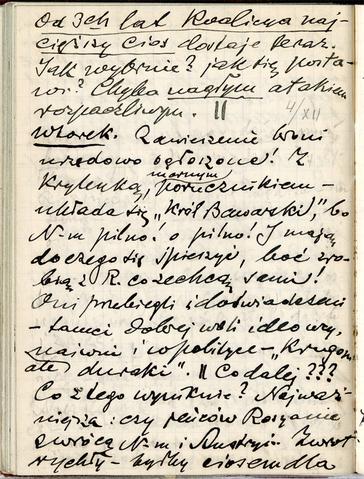 Od 3ch lat Koalicya naj-
cięższy cios dostaje teraz.
Jak wybrnie? jak się posta-
wi? Chyba nagłym atakiem
rozpaczliwym. || 4/XII
Wtorek. Zawieszenie broni
urzędowo ogłoszone! Z
Krylenką, marnym porucznikiem –
układa się „Król Bawarski", bo
N-m pilno! o pilno! I mają
do czego się śpieszyć, boć zro-
bią z R. co zechcą sami!
Oni przebiegli i doświadczeni
– tamci dobrej woli ideowy,
naiwni i w polityce –
ale duraki". || Co dalej ???
Co z tego wyniknie? Najważ-
niejsza: czy jeńców Rosyanie
zwrócą N-m i Austryi. Zwrot
rychły – byłby ciosem dla